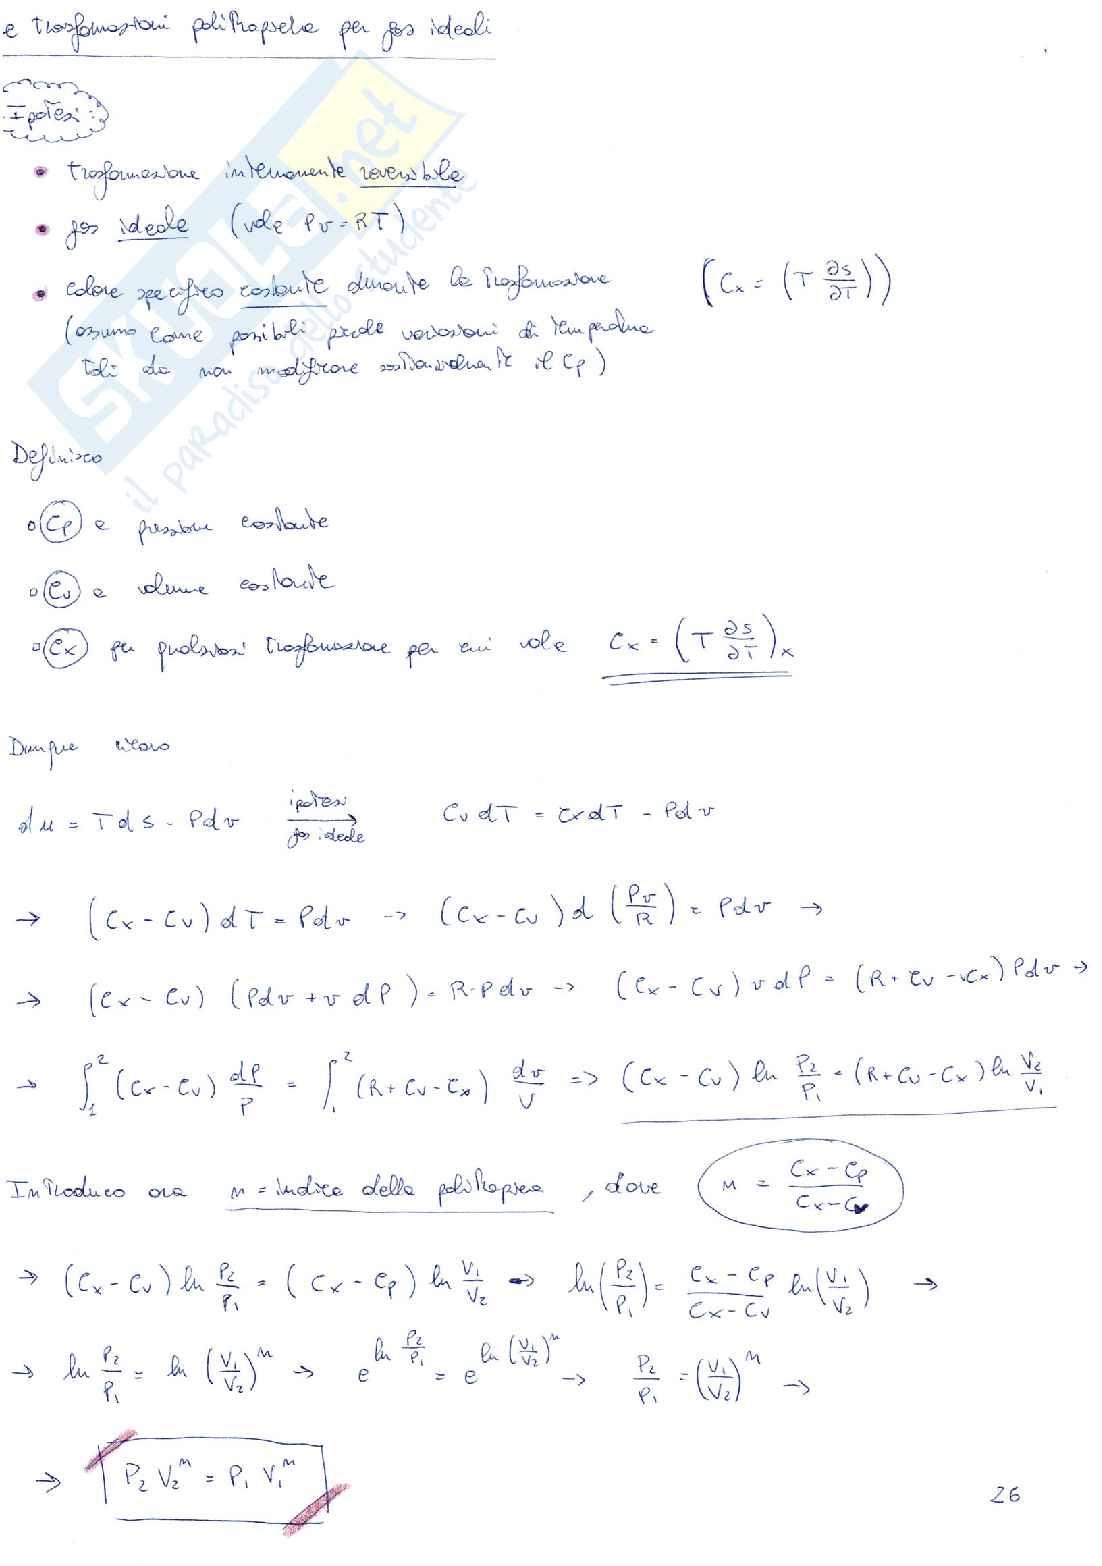 e trasformazioni politropiche per gas ideali
Ipotesi:
• trasformazione internamente reversibile
• gas ideale (vale Pv = RT)
• calore specifico costante durante la trasformazione (Cx = (T ∂s/∂T))
(assumo come possibili piccole variazioni di temperatura
tali da non modificare sostanzialmente il Cp)
SKUOLA.net
il paradiso dello studente
Definisco
o Cp a pressione costante
o Cv a volume costante
o Cx per qualsiasi trasformazione per cui vale Cx = (T ∂s/∂T)x
Dunque ricavo
du = Tds - Pdv ipotesi gas ideale → CvdT = CxdT - Pdv
→ (Cx - Cv) dT = Pdv → (Cx - Cv) d (Pv/R) = Pdv →
→ (Cx - Cv) (Pdv + v dP) = R·Pdv → (Cx - Cv) v dP = (R + Cv - Cx) Pdv →
→ ∫₁² (Cx - Cv) dP/P = ∫₁² (R + Cv - Cx) dv/v => (Cx - Cv) ln P2/P1 = (R + Cv - Cx) ln V2/V1
Introduco ora n = indice della politropica, dove n = Cx - Cp / Cx - Cv
→ (Cx - Cv) ln P2/P1 = (Cx - Cp) ln V1/V2 → ln(P2/P1) = Cx - Cp / Cx - Cv ln(V1/V2) →
→ ln P2/P1 = ln (V1/V2)^n → e^(ln P2/P1) = e^(ln (V1/V2)^n) → P2/P1 = (V1/V2)^n →
→ P2 V2^n = P1 V1^n
26